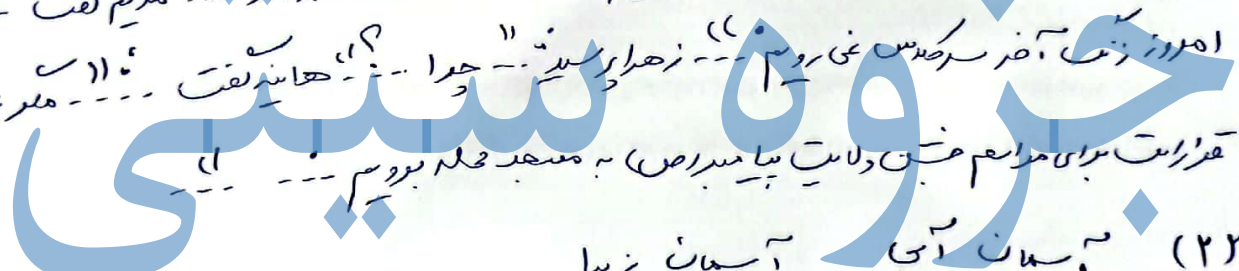 امروز زنگ آخر سر کلاس نمی رویم. » ... زهرا پرسید: ... « چرا ...؟ » هانیه گفت ..... : « ....
قرار است برای مراسم جشن ولادت پیامبر (ص) به مسجد محله برویم . .... » ....
(۲۲ آسمان آبی آسمان زیبا
جزوه سیتی